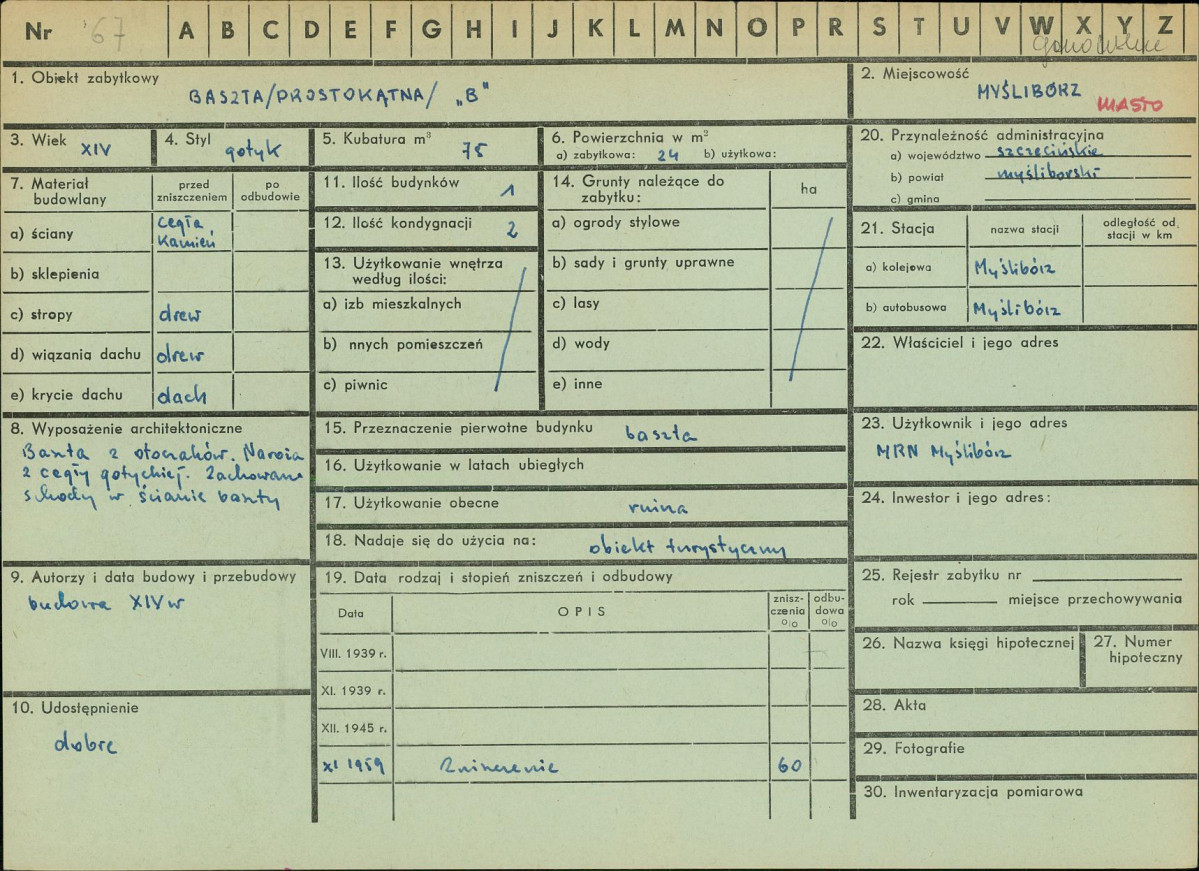 Nr '67 A B C D E F G H I J K L M N O P R S T U V W X Y Z
1. Obiekt zabytkowy
BASZTA/PROSTOKĄTNA/ „B"
2. Miejscowość
MYŚLIBÓRZ
MIASTO
3. Wiek XIV
4. Styl gotyk
5. Kubatura m³ 75
6. Powierzchnia w m²
a) zabytkowa: 24 b) użytkowa:
7. Materiał budowlany
przed zniszczeniem
po odbudowie
a) ściany cegła, kamień
b) sklepienia
c) stropy drew
d) wiązania dachu drew
e) krycie dachu dach
8. Wyposażenie architektoniczne
Baszta z otoczaków. Naroża
z cegły gotyckiej. Zachowane
schody w ścianie baszty
9. Autorzy i data budowy i przebudowy
budowa XIV w
10. Udostępnienie
dobre
11. Ilość budynków 1
12. Ilość kondygnacji 2
13. Użytkowanie wnętrza
według ilości:
a) izb mieszkalnych
b) nnych pomieszczeń
c) piwnic
14. Grunty należące do
zabytku:
ha
a) ogrody stylowe
b) sady i grunty uprawne
c) lasy
d) wody
e) inne
15. Przeznaczenie pierwotne budynku baszta
16. Użytkowanie w latach ubiegłych
17. Użytkowanie obecne ruina
18. Nadaje się do użycia na: obiekt turystyczny
19. Data rodzaj i stopień zniszczeń i odbudowy
Data OPIS znisz-czenia % odbu-dowa %
VIII. 1939 r.
XI. 1939 r.
XII. 1945 r.
XI 1959 Zniszczenie 60
20. Przynależność administracyjna
a) województwo szczecińskie
b) powiat myśliborski
c) gmina
21. Stacja nazwa stacji odległość od stacji w km
a) kolejowa Myślibórz
b) autobusowa Myślibórz
22. Właściciel i jego adres
23. Użytkownik i jego adres
MRN Myślibórz
24. Inwestor i jego adres:
25. Rejestr zabytku nr
rok miejsce przechowywania
26. Nazwa księgi hipotecznej
27. Numer
hipoteczny
28. Akta
29. Fotografie
30. Inwentaryzacja pomiarowa